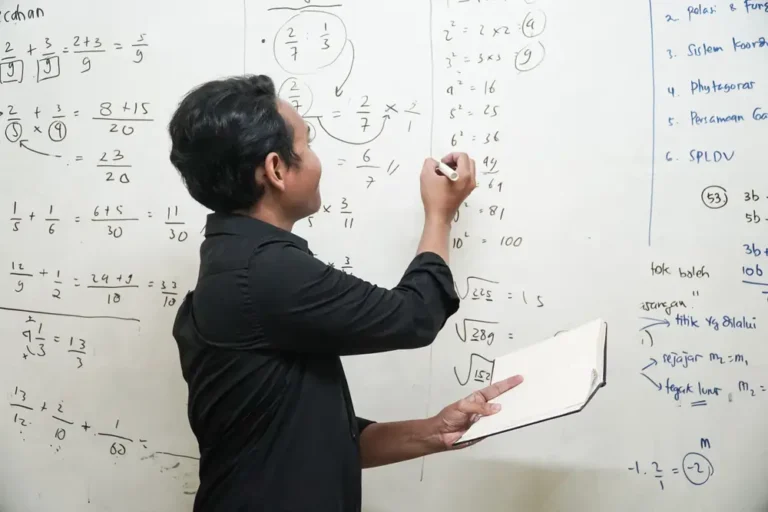 ecahan
2/9 + 3/9 = 2+3/9 = 5/9
2/5 + 3/4 = 8+15/20
= 23/20
1/5 + 1/6 = 6+5/30 = 11/30
12/9 + 1/2 = 24+9/18 = 33/18
4 1/3 = 13/3
13/12 + 2/10 + 1/60 =
2/7 : 1/3
2/7 = 2/7 × 3/1
= 6/7 //
5 × 3/11
2² = 2×2 = 4
3² = 3×3 = 9
4² = 16
5² = 25
6² = 36
49
64
= 81
10² = 100
√225 = 15
√289 =
√152
2. Relasi & Fung
3. Sistem Koord
4. Phytagoras
5. Persamaan Ga
6. SPLDV
53) 3b
5b
3b +
10b
tok boleh
"
→ titik yg dilalui
→ sejajar m₂ = m₁
→ tegak lurus m₂ =
m
-1 . 2/1 = -2